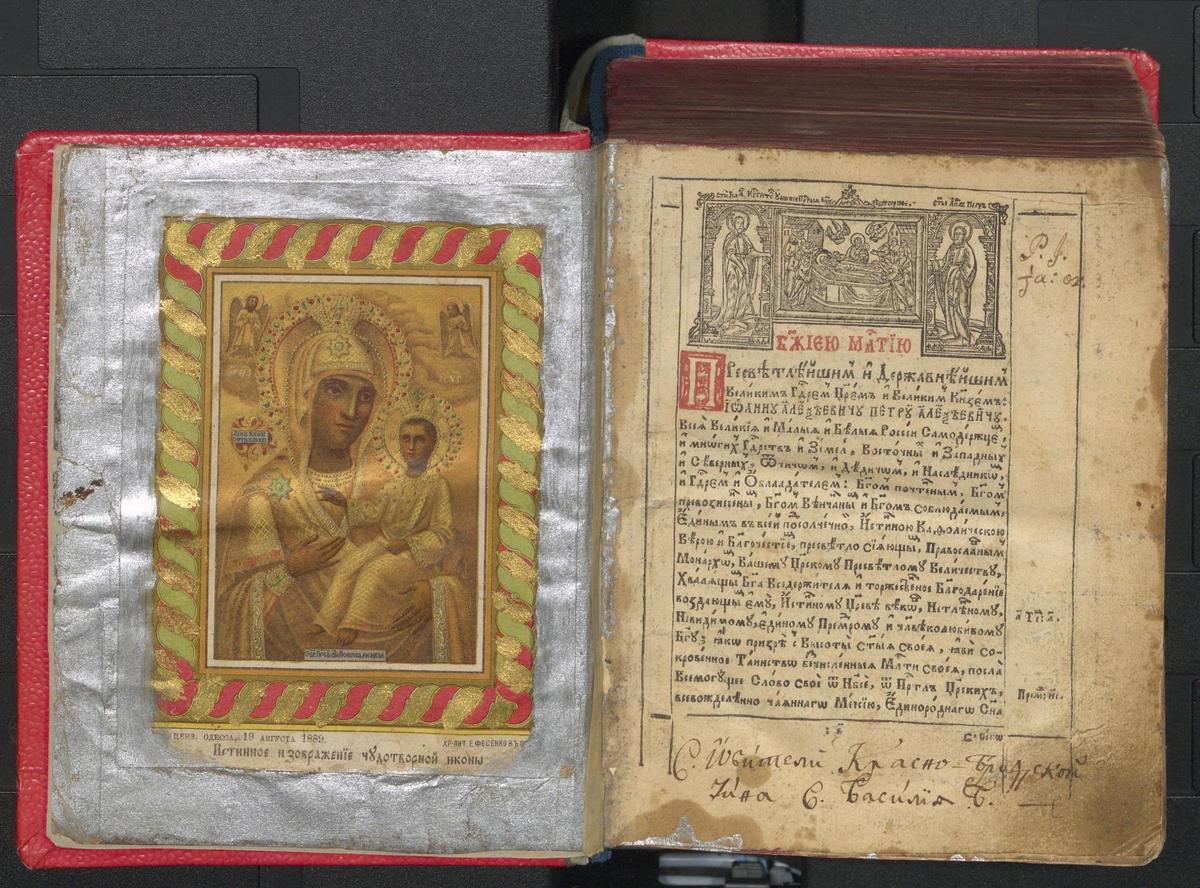 ЦЕНЗ. ОДЕССА, 19 АВГУСТА 1889.
ХР-ЛИТ Е.ФЕСЕНКО ВЪ О
Истинное изображенїе чудотворной иконы
БЖ҃ІЕЮ МЛ҃ТІЮ
Пресвѣтлѣйшим и҆ Державнѣйшим
Великимъ Гдⷭ҇рем Цр҃емъ и҆ Великим Кн҃земъ:
ІѠ҆АННУ АЛЕѮѢЕВИЧУ ПЕТРУ АЛЕѮѢЕВИЧУ.
Всеѧ̀ Великїѧ и҆ Малыѧ и҆ Бѣлыѧ Россїи Самодержце,
и҆ мнѡгих Гдⷭ҇рствъ и҆ Земел, Восточны и҆ Западных
и҆ Сѣверных, Ѿчичом, и҆ Дѣдичом, и҆ Наслѣдникѡ,
и҆ Гдⷭ҇рем и҆ Ѡ҆бладателем: Бг҃ом почтеным, Бг҃ом
превознесены, Бг҃ом Вѣнчаны и҆ Бг҃омъ Соблюдаемым,
Е҆динымъ въ всей посолнечно, И҆стинною Каѳолическою
Вѣрою и҆ Блг҃очестїе, пресвѣтло сїѧющы, Православным
Монархѡ, Вашему Цр҃скому Пресвѣтлому Величеству,
Хвалѧщы Бг҃а Вседержителѧ и҆ торжественое Блг҃одаренїе
воздающы е҆мꙋ, И҆стинному Цр҃евѣ вѣкѡ, Нетлѣному,
Невидимому, Е҆диному Премⷣрому и҆ чл҃вѣколюбивому
Бг҃у; ꙗ҆кѡ призрѣ с Высоты Ст҃ыѧ Своеѧ, ꙗ҆ви со-
кровенное Таинство безчисленныѧ Млⷭ҇ти Своеѧ, посла
Всемогущее Слово Своѐ Ѿ Нб҃се, Ѿ Прⷭ҇тлъ Цр҃ских,
всевожделѣнно чаѧннаго Мессїю, Е҆динороднаго Сн҃а
а҃ Ти: а҃.
Прем: иі.
С. Ѡбители Красно-
Чина С. Василїѧ В.